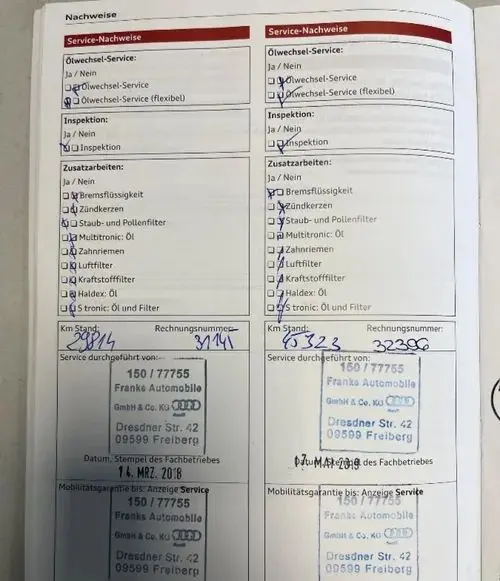 Nachweise
Service-Nachweise
Ölwechsel-Service:
Ja / Nein
Ölwechsel-Service
Ölwechsel-Service (flexibel)
Inspektion:
Ja / Nein
Inspektion
Zusatzarbeiten:
Ja / Nein
Bremsflüssigkeit
Zündkerzen
Staub- und Pollenfilter
Multitronic: Öl
Zahnriemen
Luftfilter
Kraftstofffilter
Haldex: Öl
S tronic: Öl und Filter
Km Stand: Rechnungsnummer:
29814 31141
Service durchgeführt von:
150 / 77755
Franks Automobile
GmbH & Co. KG
Dresdner Str. 42
09599 Freiberg
Datum, Stempel des Fachbetriebes
14. MRZ. 2018
Mobilitätsgarantie bis: Anzeige Service
150 / 77755
Franks Automobile
GmbH & Co. KG
Dresdner Str. 42
09599 Freiberg
Service-Nachweise
Ölwechsel-Service:
Ja / Nein
Ölwechsel-Service
Ölwechsel-Service (flexibel)
Inspektion:
Ja / Nein
Inspektion
Zusatzarbeiten:
Ja / Nein
Bremsflüssigkeit
Zündkerzen
Staub- und Pollenfilter
Multitronic: Öl
Zahnriemen
Luftfilter
Kraftstofffilter
Haldex: Öl
S tronic: Öl und Filter
Km Stand: Rechnungsnummer:
45323 32396
Service durchgeführt von:
150 / 77755
Franks Automobile
GmbH & Co. KG
Dresdner Str. 42
09599 Freiberg
des Fachbetriebes
2019
Mobilitätsgarantie bis: Anzeige Service
150 / 77755
Franks Automobile
GmbH & Co. KG
Dresdner Str. 42
09599 Freiberg